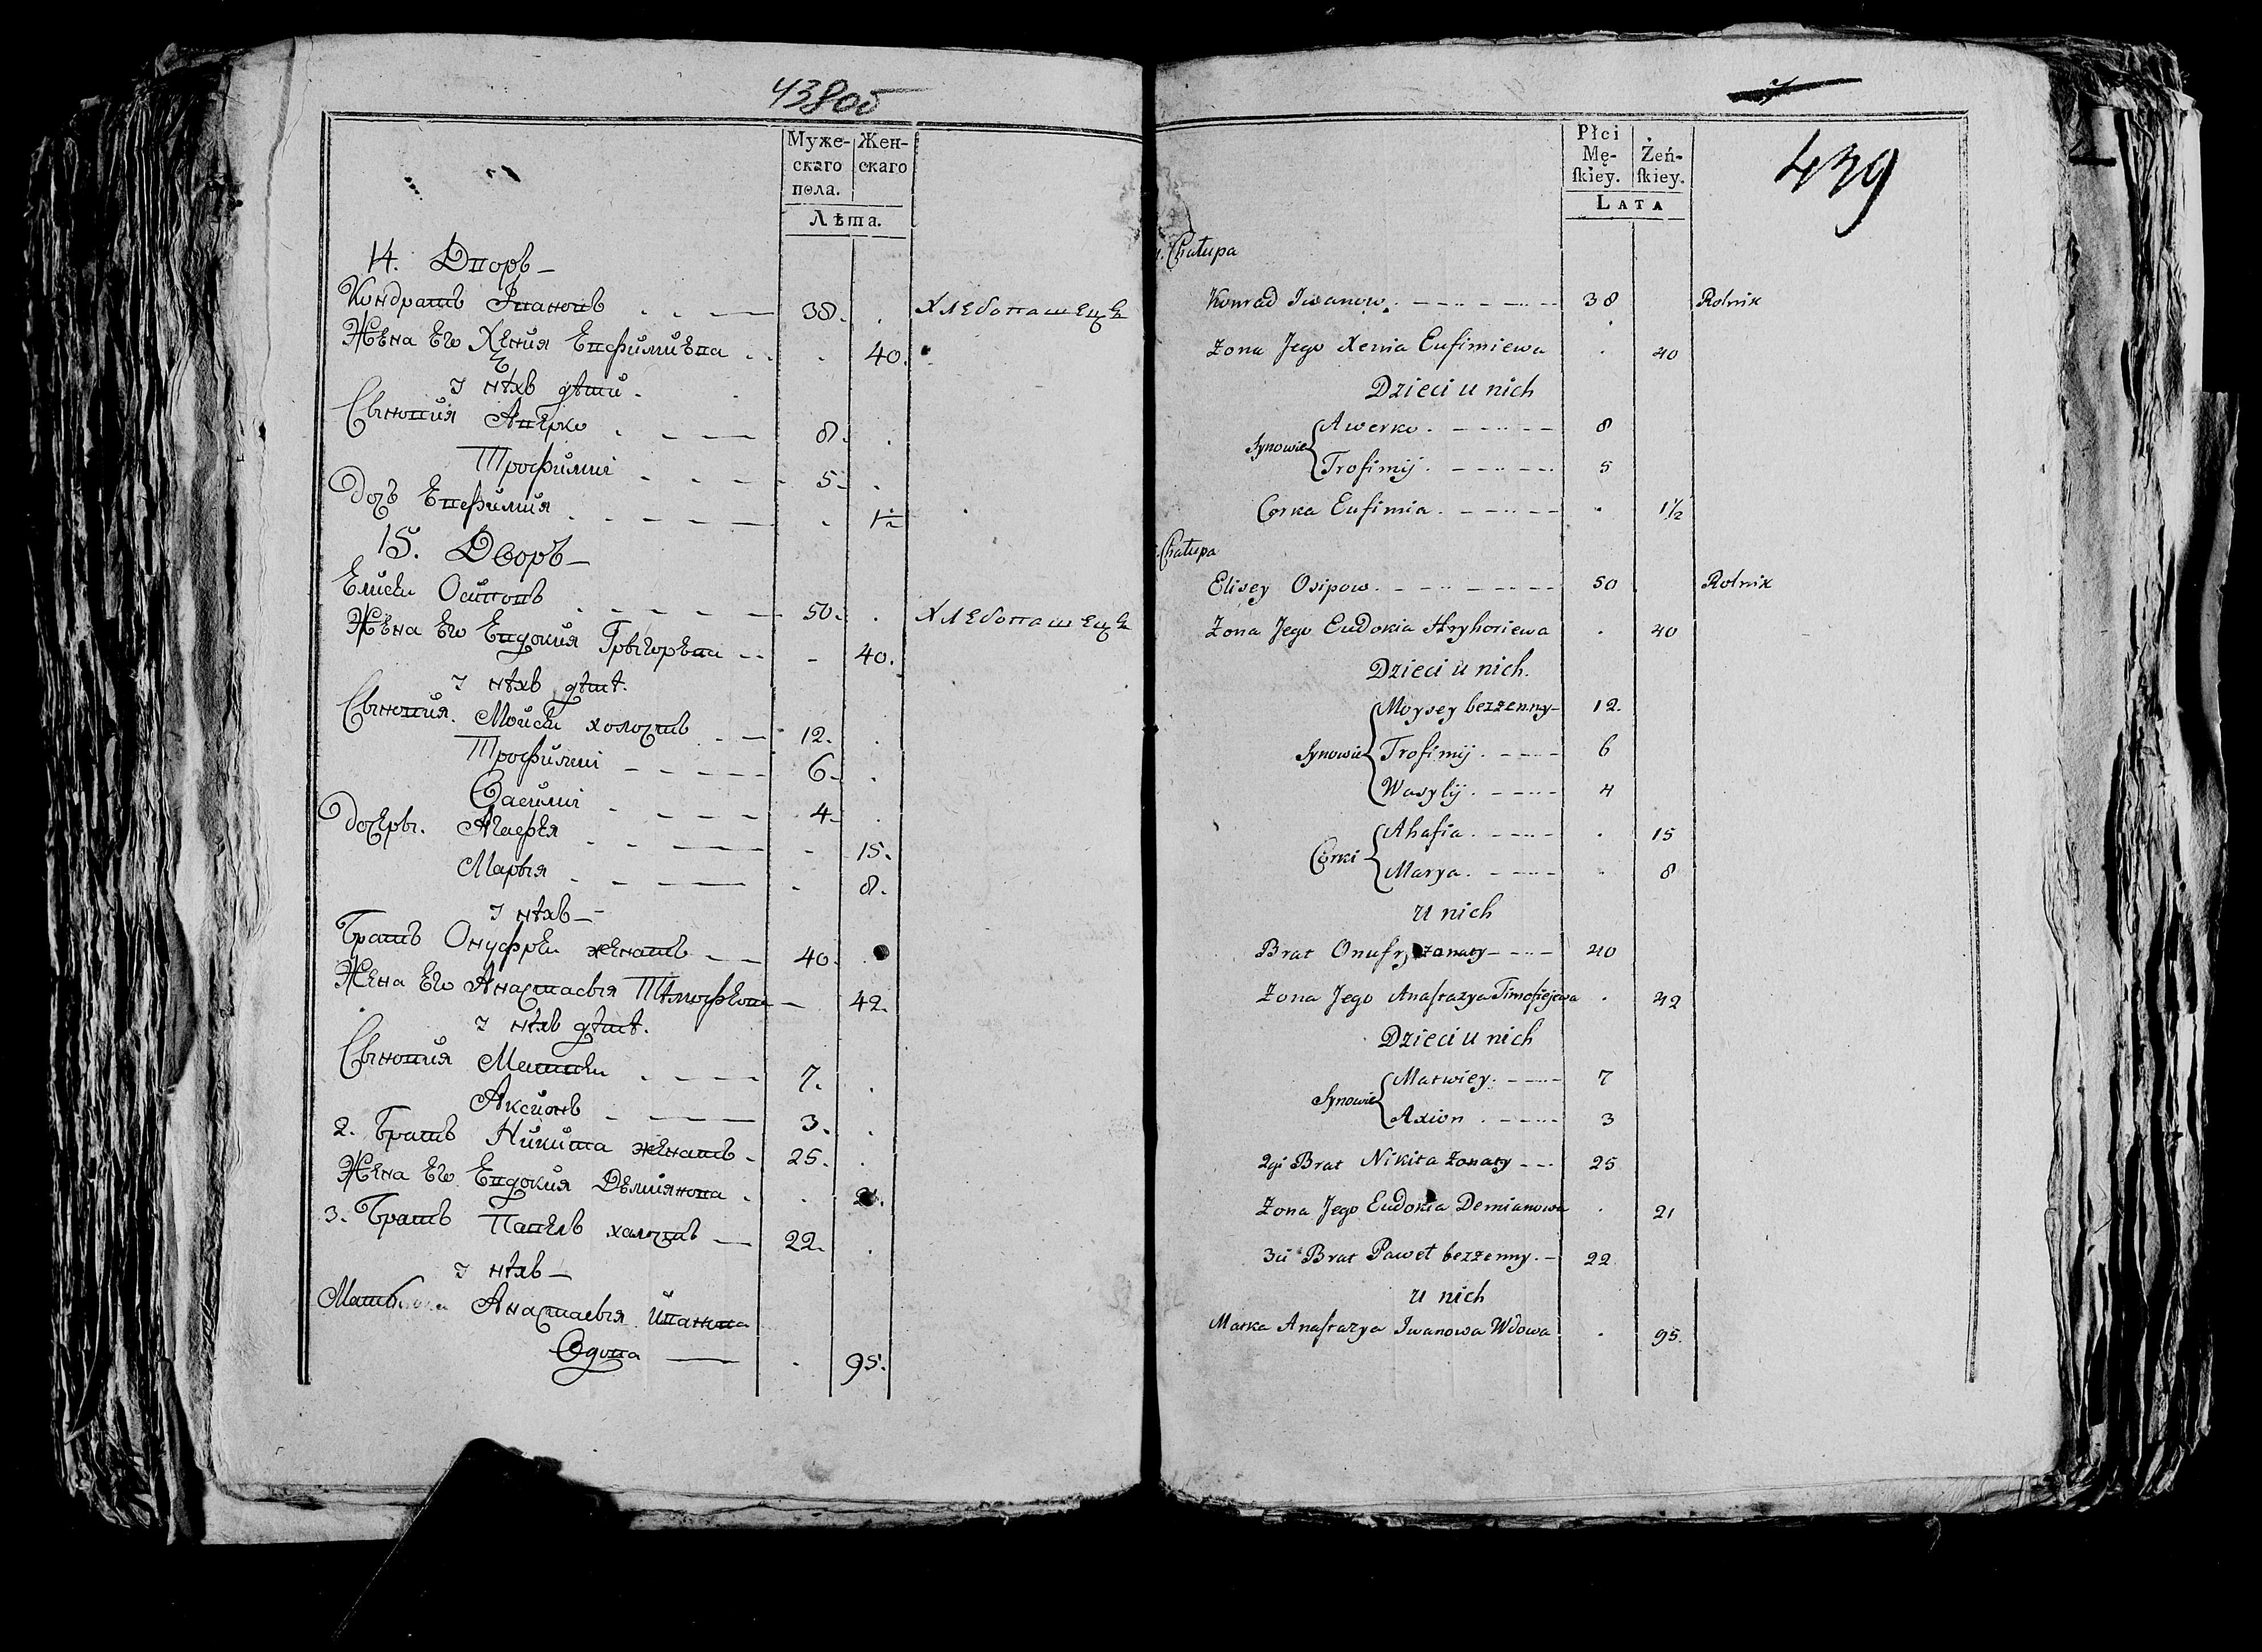 438об
Муже-
скаго
пола.
Жен-
скаго
Лѣта.
14. Дворъ
Кондратъ Ивановъ 38. Хлебопашецъ
Жена Его Хения Евфимиева 40.
У нихъ дѣти.
Сыновия Аверко 8.
Трофимиі 5.
Дочъ Евфимия 1½
15. Дворъ
Елисѣи Осиповъ 50. Хлебопашецъ
Жена Его Евдокия Грыгорева 40.
У нихъ дѣти.
Сыновия. Моисѣи холостъ 12.
Трофимиі 6.
Василиі 4.
Дочеры. Агафея 15.
Марыя 8.
У нихъ
Братъ Онуфреи женатъ 40.
Жена Его Анастасыя Тимофѣева 42.
У нихъ дѣти.
Сыновия Матвѣи 7.
Аксионъ 3.
2. Братъ Никита женатъ 25.
Жена Его Евдокия Демиянова 21.
3. Братъ Павелъ халостъ 22.
У нихъ
Анастасыя Иванова
Вдова 95.
439
Płci
Mę-
ſkiey.
Żeń-
ſkiey.
LATA
Chałupa
Konrad Iwanow 38 Rolnik
Żona Jego Xenia Eufimiewa 40
Dzieci u nich
Synowie Awerko 8
Trofimij 5
Corka Eufimia 1½
Chałupa
Elisey Osipow 50 Rolnik
Żona Jego Eudokia Hryhoriewa 40
Dzieci u nich.
Synowie Moysey bezżenny 12.
Trofimij 6
Wasylij 4
Córki Ahafia 15
Marya 8
u nich
Brat Onufry żonaty 40
Żona Jego Anaſtazya Timofiejewa 42
Dzieci u nich
Synowie Matwiey 7
Axion 3
2gi Brat Nikita żonaty 25
Żona Jego Eudokia Demianowa 21
3ci Brat Paweł bezżenny. 22
u nich
Matka Anaſtazya Iwanowa Wdowa 95.